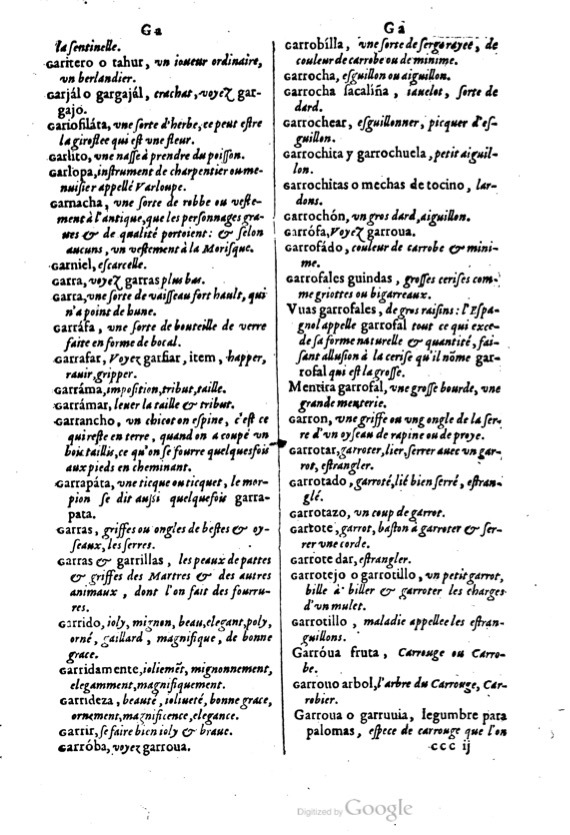 Ga
la sentinelle.
Garitero o tahur, vn ioueur ordinaire,
vn berlandier.
Garjál o gargajál, crachat, voyez gar-
gajo.
Gariofiláta, vne sorte d'herbe, ce peut estre
la giroflee qui est vne fleur.
Garlito, vne nasse à prendre du poisson.
Garlopa, instrument de charpentier ou me-
nuisier appellé Varloupe.
Garnacha, vne sorte de robbe ou veste-
ment à l'antique, que les personnages gra-
ues & de qualité portoient: & selon
aucuns, vn vestement à la Morisque.
Garniel, escarcelle.
Garra, voyez garras plus bas.
Garra, vne sorte de vaisseau fort hault, qui
n'a point de hune.
Garráfa, vne sorte de bouteille de verre
faite en forme de bocal.
Garrafar, Voyez garfiar, item, happer,
rauir, gripper.
Garráma, imposition, tribut, taille.
Garrámar, leuer la taille & tribut.
Garrancho, vn chicot on espine, c'est ce
qui reste en terre, quand on a coupé vn
bois taillis, ce qu'on se fourre quelquesfois
aux pieds en cheminant.
Garrapáta, vne ticque ou ticquet, le mor-
pion se dit aussi quelquefois garra-
pata.
Garras, griffes ou ongles de bestes & oy-
seaux, les serres.
Garras & garrillas, les peaux de pattes
& griffes des Martres & des autres
animaux, dont l'on fait des fourru-
res.
Garrido, ioly, mignon, beau, elegant, poly,
orné, gaillard, magnifique, de bonne
grace.
Garridamente, ioliemẽt, mignonnement,
elegamment, magnifiquement.
Garrideza, beauté, iolineté, bonne grace,
ornement, magnificence, elegance.
Garrir, se faire bien ioly & braue.
Garróba, voyez garroua.
Ga
Garrobílla, vne sorte de serge rayee, de
couleur de carrobe ou de minime.
Garrocha, esguillon ou aiguillon.
Garrocha sacalíña, iauelot, sorte de
dard.
Garrochear, esguillonner, picquer d'es-
guillon.
Garrochita y garrochuela, petit aiguil-
lon.
Garrochitas o mechas de tocino, lar-
dons.
Garrochón, vn gros dard, aiguillon.
Garrófa, Voyez garroua.
Garrofádo, couleur de carrobe & mini-
me.
Garrofales guindas, grosses cerises com-
me griottes ou bigarreaux.
Vuas garrofales, de gros raisins: l'Espa-
gnol appelle garrofal tout ce qui exce-
de sa forme naturelle & quantité, fai-
sant allusion à la cerise qu'il nõme gar-
rofal qui est la grosse.
Mentira garrofal, vne grosse bourde, vne
grande menterie.
Garron, vne griffe ou vng ongle de la ser-
re d'vn oyseau de rapine ou de proye.
Garrotar, garroter, lier, serrer auec vn gar-
rot, estrangler.
Garrotado, garroté, lié bien serré, estran-
glé.
Garrotazo, vn coup de garrot.
Garrote, garrot, baston à garroter & ser-
rer vne corde.
Garrote dar, estrangler.
Garrotejo o garrotillo, vn petit garrot,
bille à biller & garroter les charges
d'vn mulet.
Garrotillo, maladie appellee les estran-
guillons.
Garróua fruta, Carrouge ou Carro-
be.
Garrouo arbol, l'arbre du Carrouge, Car-
robier.
Garroua o garruuia, legumbre para
palomas, espece de carrouge que l'on
ccc ij
Digitized by Google